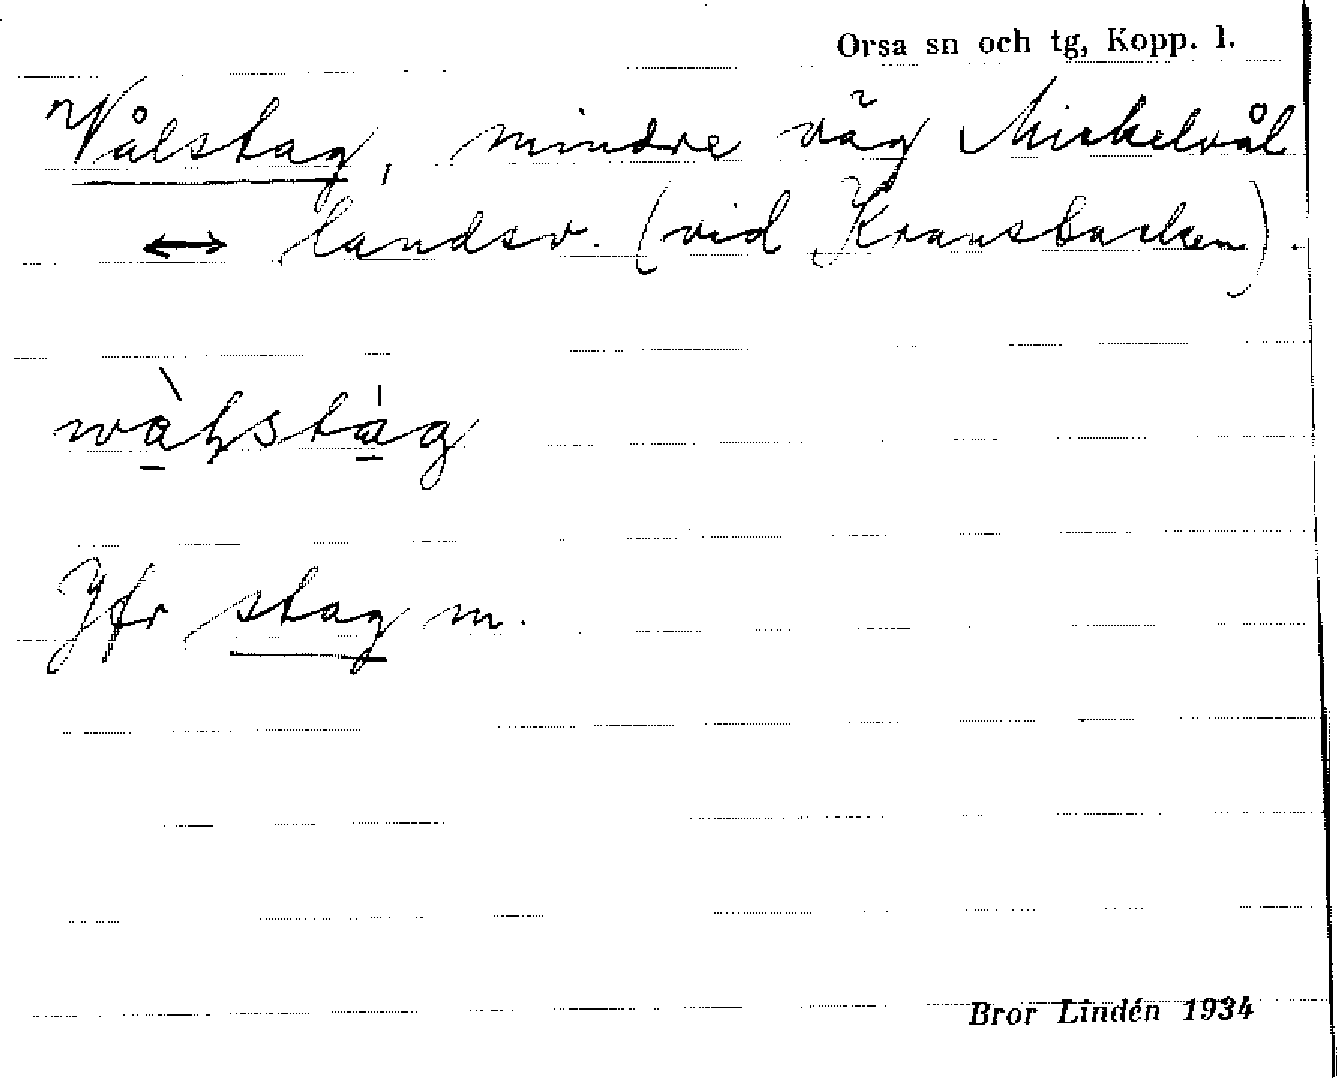 Orsa sn och tg, Kopp. l.
Vålstag, mindre väg Mickelvål
↔ landsv. (vid Kransbacken).
Jfr stag m.
Bror Lindén 1934